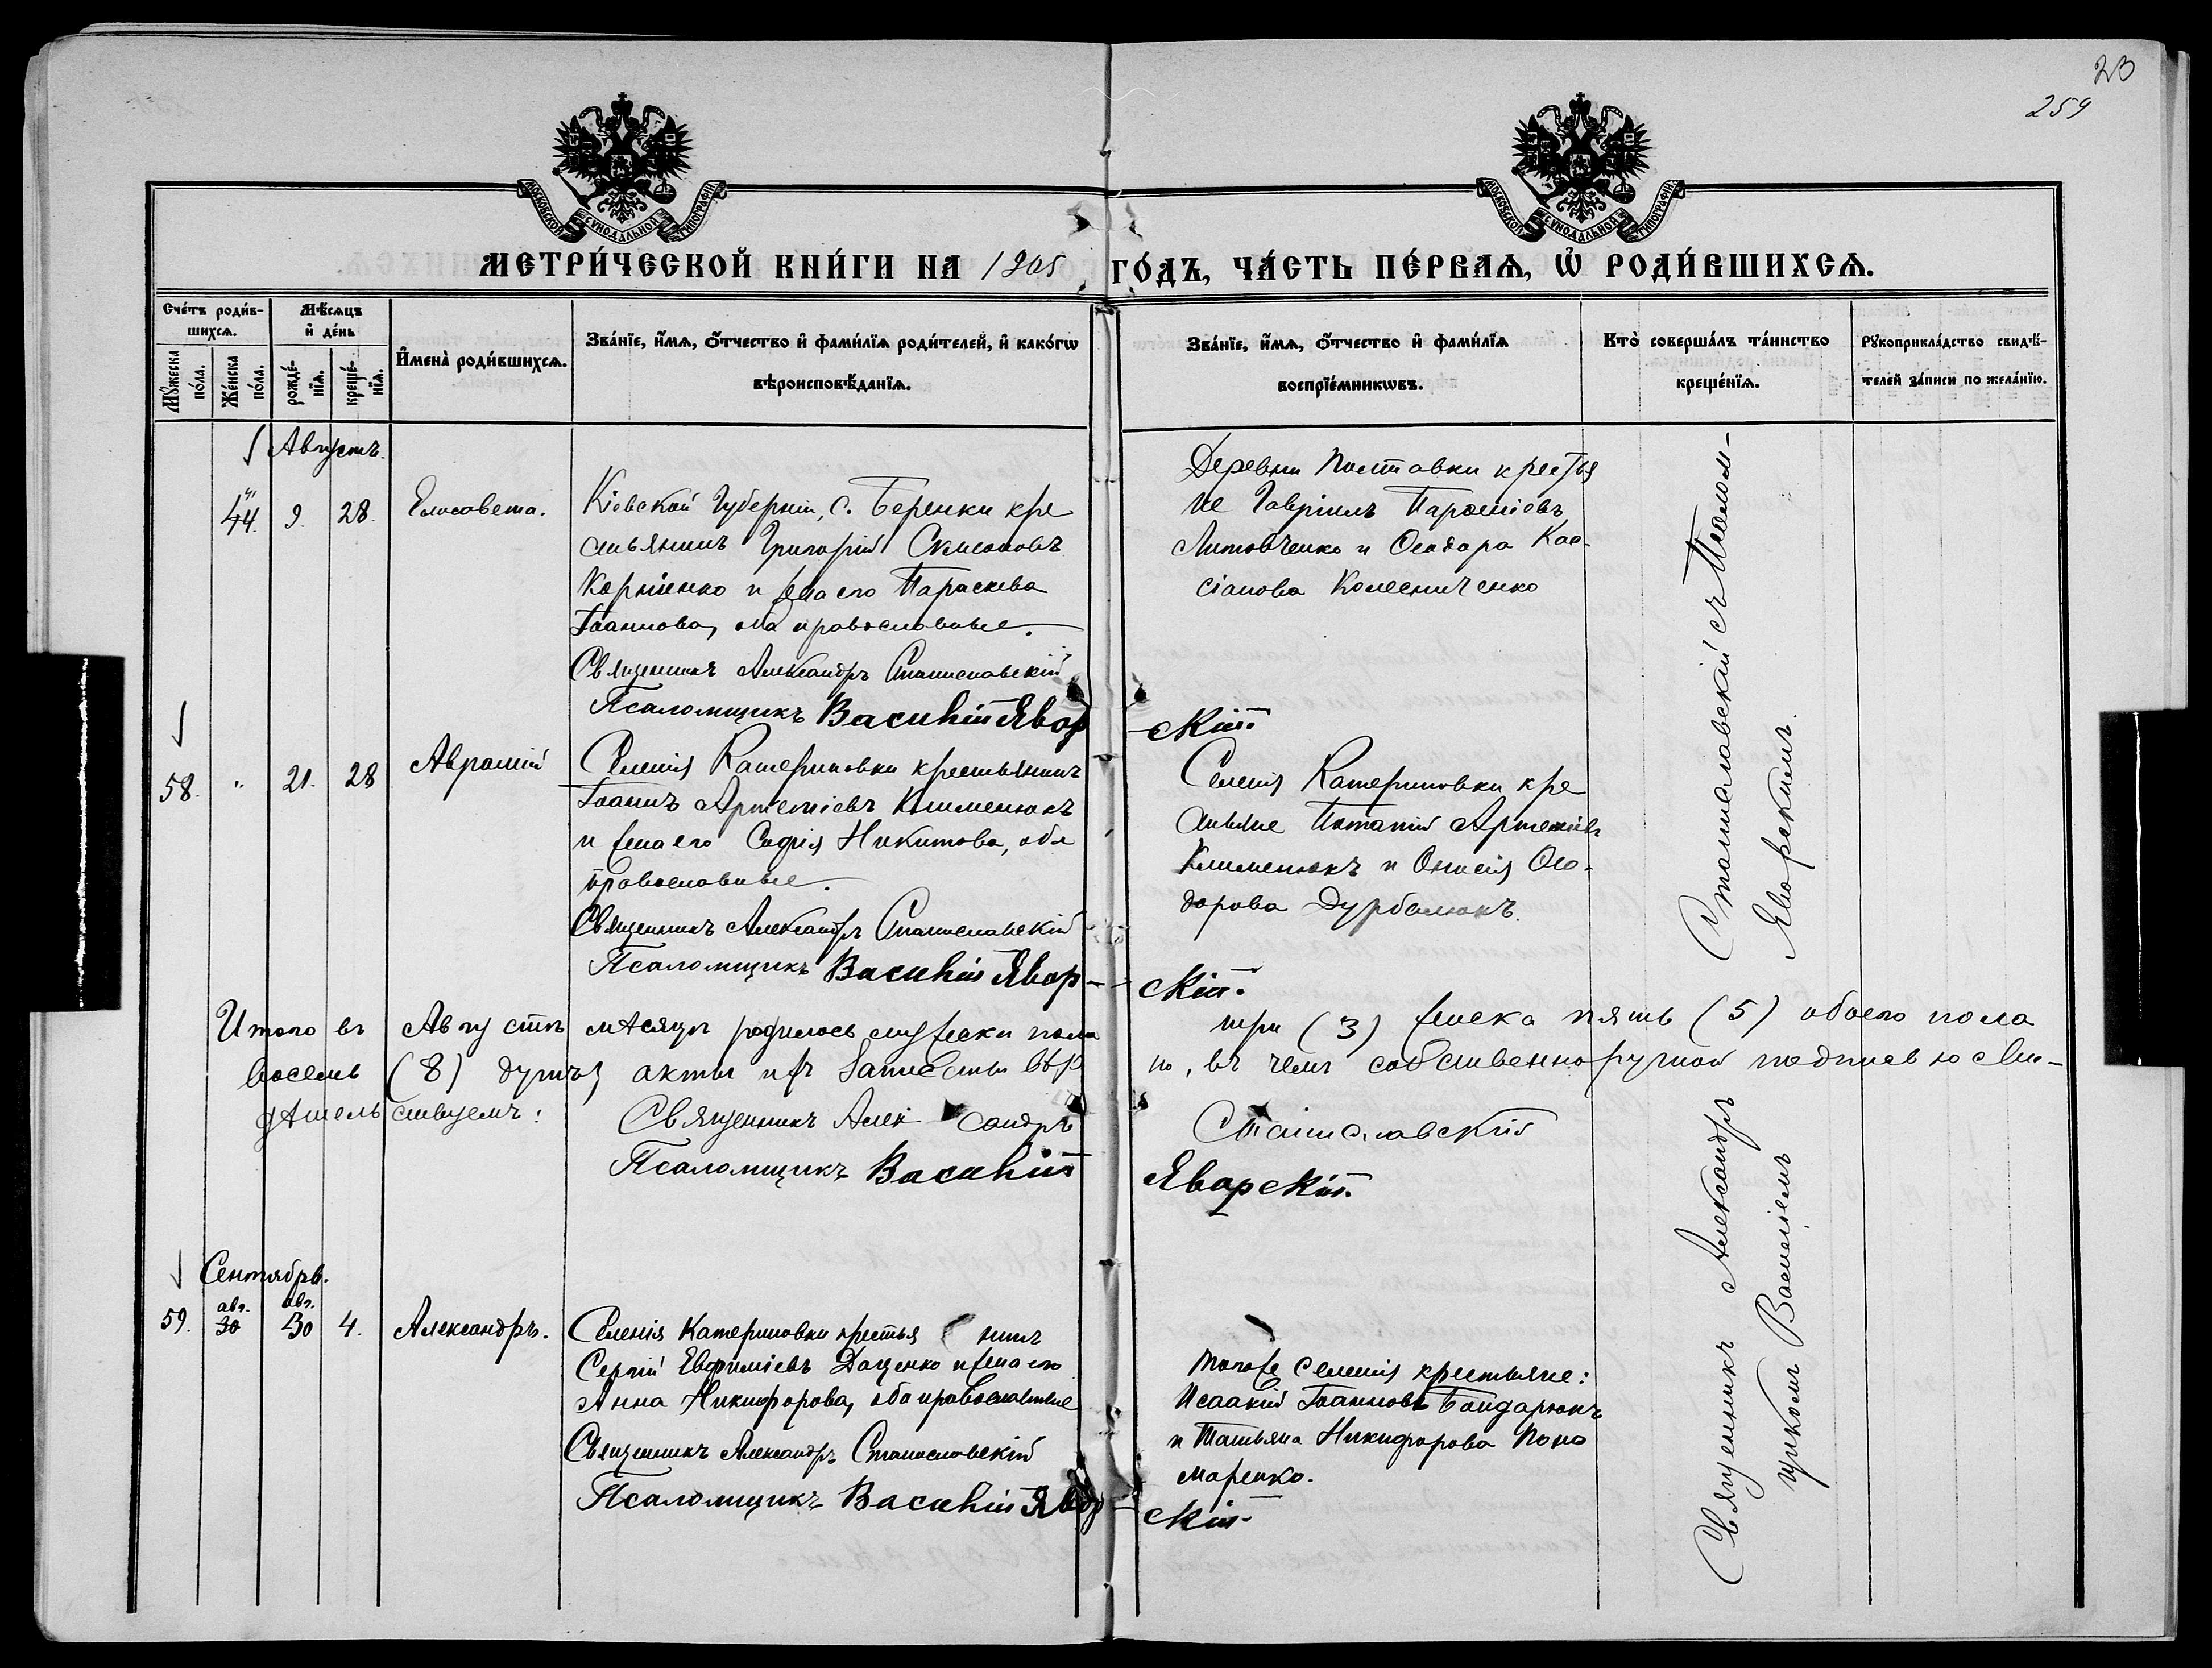 23
259
МОСКОВСКОЙ СѴНОДАЛЬНОЙ ТИПОГРАФІИ
МОСКОВСКОЙ СѴНОДАЛЬНОЙ ТИПОГРАФІИ
МЕТРИ́ЧЕСКОЙ КНИ́ГИ НА 1905 ГО́ДЪ, ЧА́СТЬ ПЕ́РВАѦ, Ѡ҆ РОДИ́ВШИХСѦ.
Сче́тъ роди́в-
шихсѧ.
Мꙋ́жеска
по́ла.
Же́нска
по́ла.
Мѣ́сѧцъ
и҆ де́нь
рожде́-
нїѧ.
креще́-
нїѧ.
И҆мена̀ роди́вшихсѧ.
Зва́нїе, и҆́мѧ, ѻ҆́тчество и҆ фами́лїѧ роди́телей, и҆ како́гѡ
вѣроисповѣ́данїѧ.
Зва́нїе, и҆́мѧ, ѻ҆́тчество и҆ фами́лїѧ
воспрїе́мникѡвъ.
Кто̀ соверша́лъ та́инство
креще́нїѧ.
Рꙋкоприкла́дство свидѣ́-
телей за́писи по жела́нїю.
Августъ.
44. 9. 28. Елисавета.
Кіевской Губерніи, с. Беренки кре
стьянинъ Григорій
и жена его Параскева
Іоаннова, оба православные.
Священникъ Александръ Станиславскій
Псаломщикъ Василій Явор
скій
Деревни Поставки крестья
не Гавріилъ
Литовченко и Ѳеодора Кас-
сіанова Колесниченко
58. " 21. 28 Аврамій
Селенія Катериновки крестьянинъ
Іоаннъ Артеміевъ Клименюкъ
и жена его Софія Никитова, оба
православные.
Священникъ Александръ Станиславскій
Псаломщикъ Василій Явор-
скій.
Селенія Катериновки кре
стьяне Потапій Артеміевъ
Клименюкъ и Онисія Ѳео-
дорова Дурбалюкъ.
Итого въ Августѣ мѣсяцѣ родилось мужеска пола три (3) женска пять (5) обоего пола
восемь (8) душъ, акты въ чемъ собственноручной подписью сви-
дѣтельствуемъ:
Священникъ Александръ Станиславскій
Псаломщикъ Василій Яворскій.
Сентябрь.
59. авг. 30 авг. 30 4. Александръ.
Селенія Катериновки крестьянинъ
Сергій Евфиміевъ Даценко и жена его
Анна Никифорова, оба православные
Священникъ Александръ Станиславскій
Псаломщикъ Василій Явор-
скій
Того же селенія крестьяне:
Исаакій Іоанновъ Бондарюкъ
и Татьяна Никифорова Поно
маренко.
Священникъ Александръ Станиславскій съ Псалом-
щикомъ Василіемъ Яворскимъ.